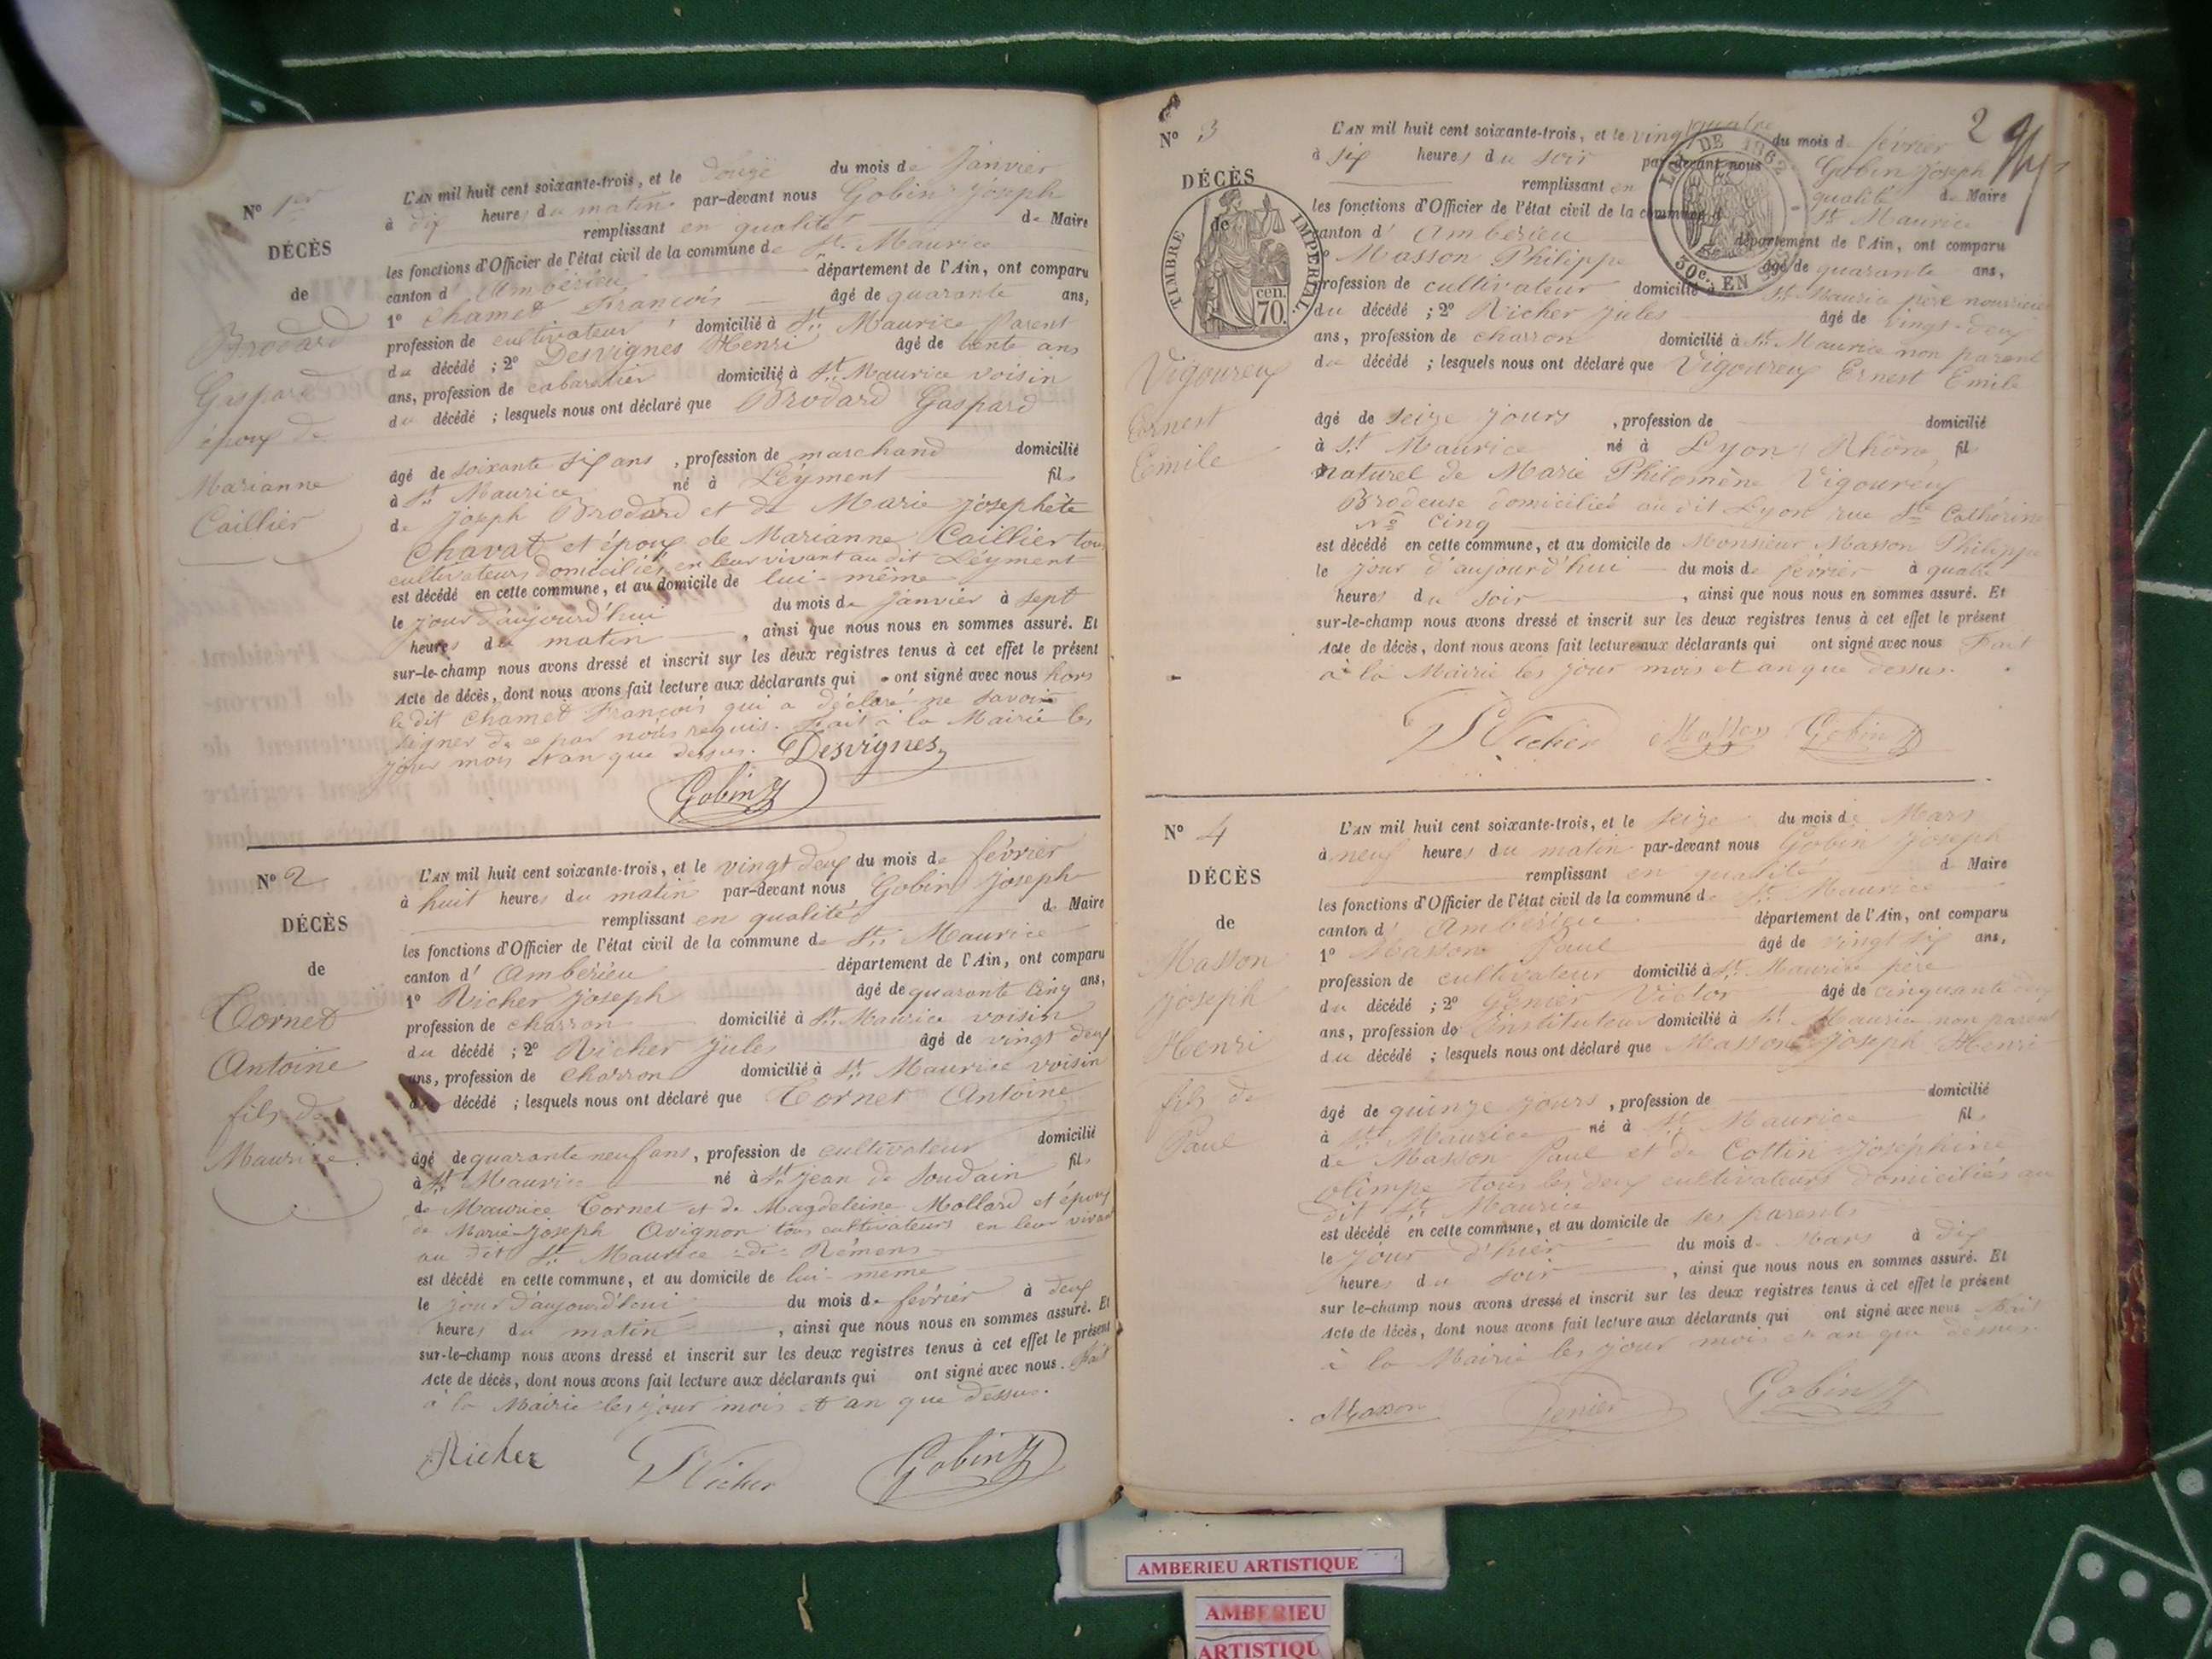 N° 1er
DÉCÈS
de
Brodard
Gaspard
époux de
Marianne
Caillier
L'AN mil huit cent soixante-trois, et le douze du mois de Janvier
à dix heures du matin par-devant nous Gobin Joseph
remplissant en qualité de Maire
les fonctions d'Officier de l'état civil de la commune de St. Maurice
canton d'Ambérieu département de l'Ain, ont comparu
1° Chamet François âgé de quarante ans,
profession de cultivateur domicilié à St. Maurice parent
du décédé ; 2° Desvignes Henri âgé de trente ans
ans, profession de cabaretier domicilié à St. Maurice voisin
du décédé ; lesquels nous ont déclaré que Brodard Gaspard
âgé de soixante six ans, profession de marchand domicilié
à St. Maurice né à Léyment fils
de Joseph Brodard et de Marie Josephète
Chavat et époux de Marianne Caillier tous
cultivateurs domiciliés en leur vivant au dit Léyment
est décédé en cette commune, et au domicile de lui-même
le jour d'aujourd'hui du mois de Janvier à sept
heures du matin, ainsi que nous nous en sommes assuré. Et
sur-le-champ nous avons dressé et inscrit sur les deux registres tenus à cet effet le présent
Acte de décès, dont nous avons fait lecture aux déclarants qui ont signé avec nous hors
le dit Chamet François qui a déclaré ne savoir
signer de ce par nous requis. Fait à la Mairie les
jour mois et an que dessus. Desvignes
Gobin J
N° 2
DÉCÈS
de
Cornet
Antoine
fils de
Maurice.
L'AN mil huit cent soixante-trois, et le vingt deux du mois de février
à huit heures du matin par-devant nous Gobin Joseph
remplissant en qualité de Maire
les fonctions d'Officier de l'état civil de la commune de St. Maurice
canton d'Ambérieu département de l'Ain, ont comparu
1° Richer Joseph âgé de quarante cinq ans,
profession de charron domicilié à St. Maurice voisin
du décédé ; 2° Richer Jules âgé de vingt deux
ans, profession de charron domicilié à St. Maurice voisin
du décédé ; lesquels nous ont déclaré que Cornet Antoine
âgé de quarante neuf ans, profession de cultivateur domicilié
à St. Maurice né à St. Jean de Soudain fils
de Maurice Cornet et de Magdeleine Mollard et époux
de Marie-Joseph Avignon tous cultivateurs en leur vivant
au dit St. Maurice-de-Rémens
est décédé en cette commune, et au domicile de lui-même
le jour d'aujourd'hui du mois de février à deux
heures du matin, ainsi que nous nous en sommes assuré. Et
sur-le-champ nous avons dressé et inscrit sur les deux registres tenus à cet effet le présent
Acte de décès, dont nous avons fait lecture aux déclarants qui ont signé avec nous. Fait
à la Mairie les jour mois et an que dessus.
Richer J Richer Gobin J
2
N° 3
DÉCÈS
de
TIMBRE IMPÉRIAL
70 cen.
LOI DE 1862
30c. EN SUS
Vigoureux
Ernest
Emile
L'AN mil huit cent soixante-trois, et le vingt quatre du mois de février
à six heures du soir par-devant nous Gobin Joseph
remplissant en qualité de Maire
les fonctions d'Officier de l'état civil de la commune de St. Maurice
canton d'Ambérieu département de l'Ain, ont comparu
1° Masson Philippe âgé de quarante ans,
profession de cultivateur domicilié à St. Maurice père nourricier
du décédé ; 2° Richer Jules âgé de vingt-deux
ans, profession de charron domicilié à St. Maurice non parent
du décédé ; lesquels nous ont déclaré que Vigoureux Ernest Emile
âgé de seize jours, profession de domicilié
à St. Maurice né à Lyon Rhône fils
naturel de Marie Philomène Vigoureux
Brodeuse domiciliée au dit Lyon rue Ste Cathérine
N° cinq
est décédé en cette commune, et au domicile de Monsieur Masson Philippe
le jour d'aujourd'hui du mois de février à quatre
heures du soir, ainsi que nous nous en sommes assuré. Et
sur-le-champ nous avons dressé et inscrit sur les deux registres tenus à cet effet le présent
Acte de décès, dont nous avons fait lecture aux déclarants qui ont signé avec nous Fait
à la Mairie les jour mois et an que dessus.
J Richer Masson Gobin J
N° 4
DÉCÈS
de
Masson
Joseph
Henri
fils de
Paul
L'AN mil huit cent soixante-trois, et le seize du mois de Mars
à neuf heures du matin par-devant nous Gobin Joseph
remplissant en qualité de Maire
les fonctions d'Officier de l'état civil de la commune de St. Maurice
canton d'Ambérieu département de l'Ain, ont comparu
1° Masson Paul âgé de vingt six ans,
profession de cultivateur domicilié à St. Maurice père
du décédé ; 2° Génier Victor âgé de cinquante deux
ans, profession de Instituteur domicilié à St. Maurice non parent
du décédé ; lesquels nous ont déclaré que Masson Joseph Henri
âgé de quinze jours, profession de domicilié
à St. Maurice né à St. Maurice fils
de Masson Paul et de Cottin Joséphine
olimpe tous les deux cultivateurs domiciliés au
dit St. Maurice
est décédé en cette commune, et au domicile de ses parents
le jour d'hier du mois de Mars à dix
heures du soir, ainsi que nous nous en sommes assuré. Et
sur le-champ nous avons dressé et inscrit sur les deux registres tenus à cet effet le présent
Acte de décès, dont nous avons fait lecture aux déclarants qui ont signé avec nous Fait
à la Mairie les jour mois et an que dessus.
Masson Genier Gobin J
AMBERIEU ARTISTIQUE
AMBERIEU
ARTISTIQU